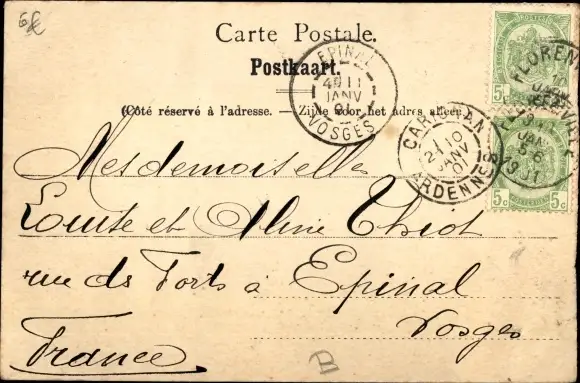 Carte Postale.
Postkaart.
(Côté réservé à l'adresse. — Zijde voor het adres alleen)
EPINAL
JANV
01
VOSGES
CARIGNAN
10
JANV
01
ARDENNES
5c 5c
5c 5c
Mesdemoiselles
Louise et Aline Thiot
rue des Forts à Epinal
Vosges
France